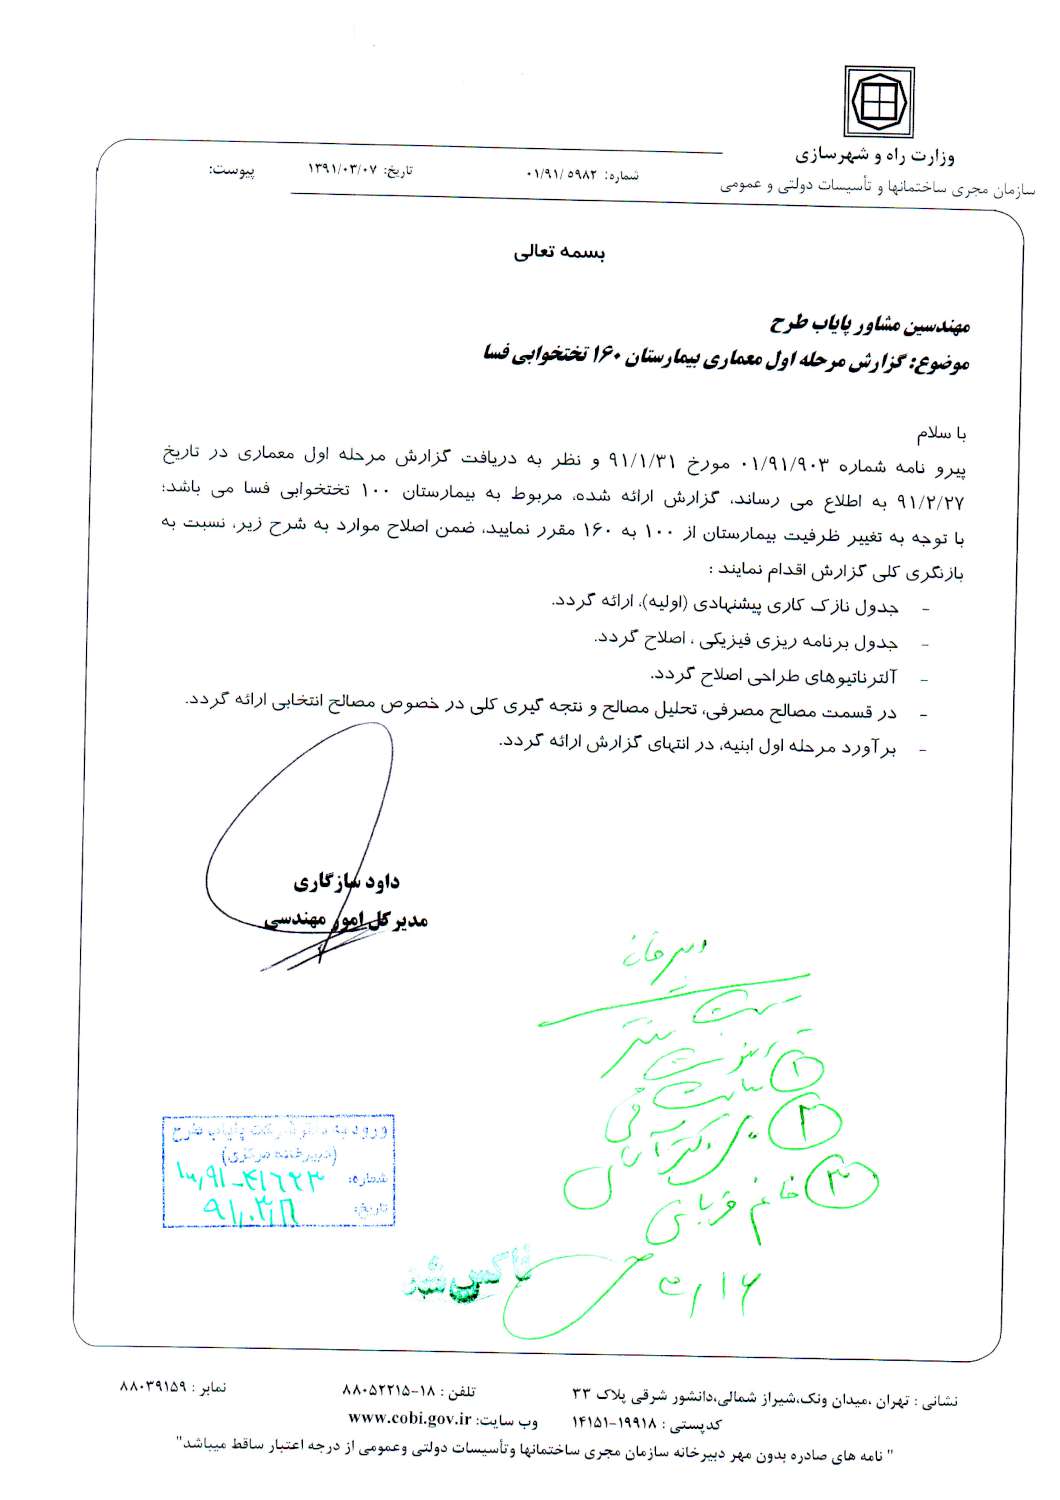 وزارت راه و شهرسازی
سازمان مجری ساختمانها و تأسیسات دولتی و عمومی
شماره: ۰۱/۹۱/ ۵۹۸۲
تاریخ: ۱۳۹۱/۰۳/۰۷
پیوست:
بسمه تعالی
مهندسین مشاور پایاب طرح
موضوع: گزارش مرحله اول معماری بیمارستان ۱۶۰ تختخوابی فسا
با سلام
پیرو نامه شماره ۰۱/۹۱/۹۰۳ مورخ ۹۱/۱/۳۱ و نظر به دریافت گزارش مرحله اول معماری در تاریخ
۹۱/۲/۲۷ به اطلاع می رساند، گزارش ارائه شده، مربوط به بیمارستان ۱۰۰ تختخوابی فسا می باشد؛
با توجه به تغییر ظرفیت بیمارستان از ۱۰۰ به ۱۶۰ مقرر نمایید، ضمن اصلاح موارد به شرح زیر، نسبت به
بازنگری کلی گزارش اقدام نمایند :
- جدول نازک کاری پیشنهادی (اولیه)، ارائه گردد.
- جدول برنامه ریزی فیزیکی ، اصلاح گردد.
- آلترناتیوهای طراحی اصلاح گردد.
- در قسمت مصالح مصرفی، تحلیل مصالح و نتجه گیری کلی در خصوص مصالح انتخابی ارائه گردد.
- برآورد مرحله اول ابنیه، در انتهای گزارش ارائه گردد.
داود سازگاری
مدیرکل امور مهندسی
دبیرخانه
۱
۲
۳ خانم قربانی
۳/۱۶
ورود به دفتر شرکت پایاب طرح
(دبیرخانه مرکزی)
شماره:
تاریخ:
فاکس شد
نشانی : تهران ،میدان ونک،شیراز شمالی،دانشور شرقی پلاک ۳۳
تلفن : ۱۸-۸۸۰۵۲۲۱۵
نمابر : ۸۸۰۳۹۱۵۹
کدپستی : ۱۹۹۱۸-۱۴۱۵۱
وب سایت: www.cobi.gov.ir
" نامه های صادره بدون مهر دبیرخانه سازمان مجری ساختمانها وتأسیسات دولتی وعمومی از درجه اعتبار ساقط میباشد"